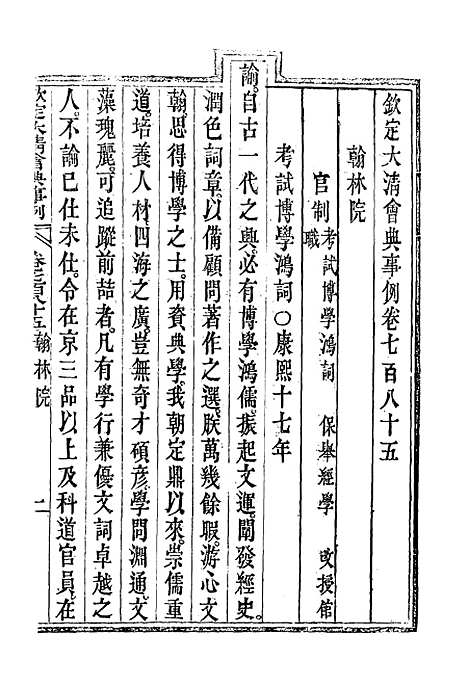 欽定大清會典事例卷七百八十五
翰林院
官制 考試博學鴻詞 保舉經學 改授館職
考試博學鴻詞〇康熙十七年
諭。自古一代之興。必有博學鴻儒。振起文運。闡發經史。
潤色詞章。以備顧問著作之選。朕萬幾餘暇。游心文
翰。思得博學之士。用資典學。我朝定鼎以來。崇儒重
道。培養人材。四海之廣。豈無奇才碩彥。學問淵通。文
藻瑰麗。可追蹤前喆者。凡有學行兼優。文詞卓越之
人。不論已仕未仕。令在京三品以上及科道官員。在
欽定大清會典事例 卷七百八十五 翰林院 一